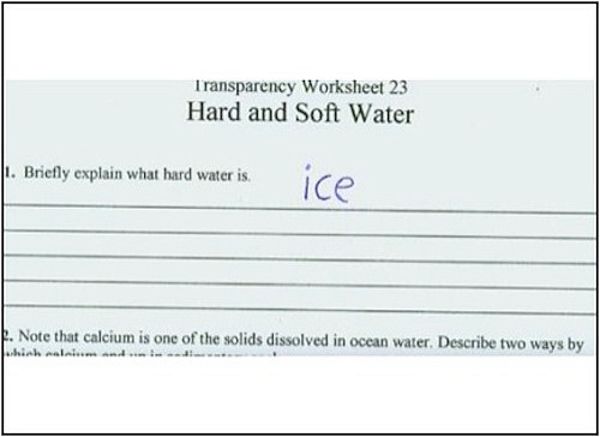 Transparency Worksheet 23
Hard and Soft Water
1. Briefly explain what hard water is. ice
2. Note that calcium is one of the solids dissolved in ocean water. Describe two ways by
which calcium end up in